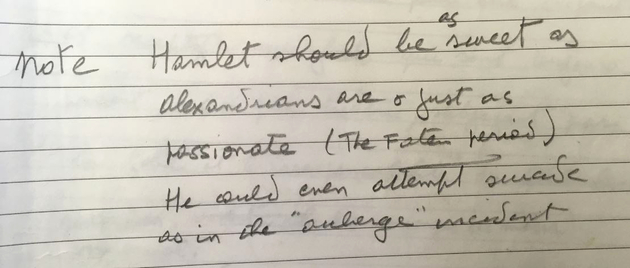 note Hamlet should be as sweet as
alexandrians are & just as
passionate (The Faten period)
He could even attempt suicide
as in the "auberge" incident